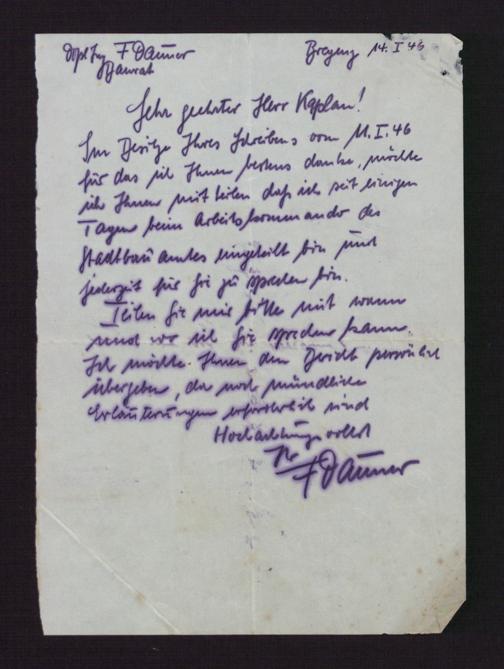 Dipl Ing F Dauner Bregenz 14. I 46
Baurat
Sehr geehrter Herr Kaplan!
Im Besitze Ihres Schreibens vom 11. I. 46
für das ich Ihnen bestens danke, möchte
ich Ihnen mitteilen daß ich seit einigen
Tagen beim Arbeitskommando des
Stadtbauamtes eingeteilt bin und
jederzeit für Sie zu sprechen bin.
Teilen Sie mir bitte mit wann
und wo ich Sie sprechen kann.
Ich möchte Ihnen den Bericht persönlich
übergeben, da noch mündliche
Erläuterungen erforderlich sind
Hochachtungsvollst
Ihr
F Dauner